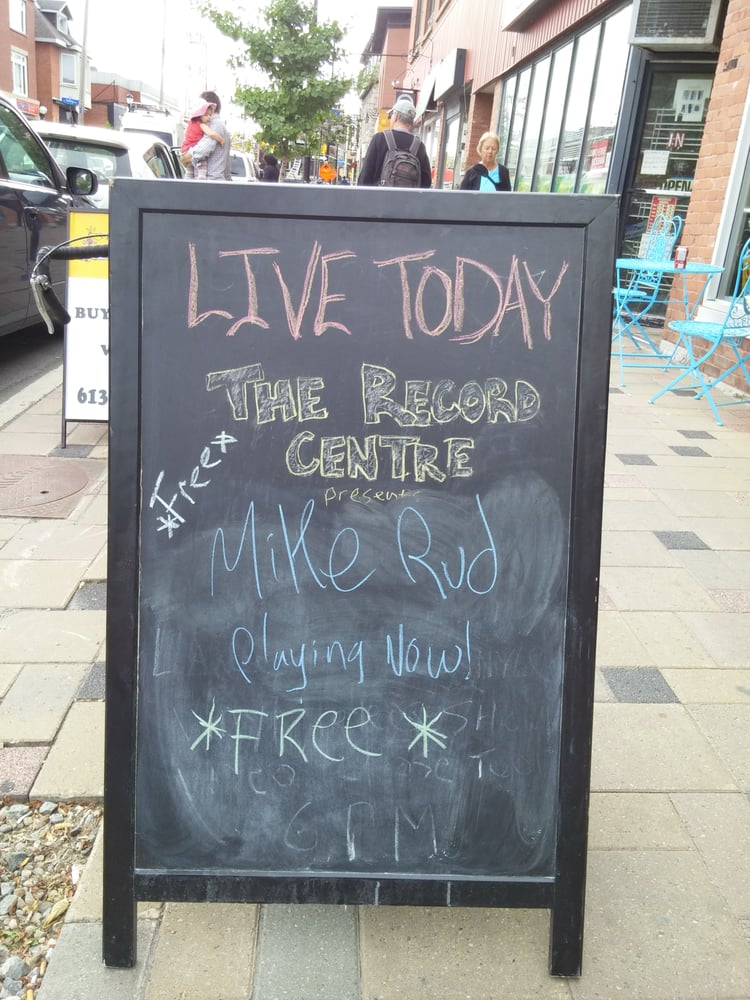 LIVE TODAY
THE RECORD
CENTRE
presents
*Free*
Mike Rud
playing Now!
*FRee*
6 PM
BUY
613
IN
OPEN